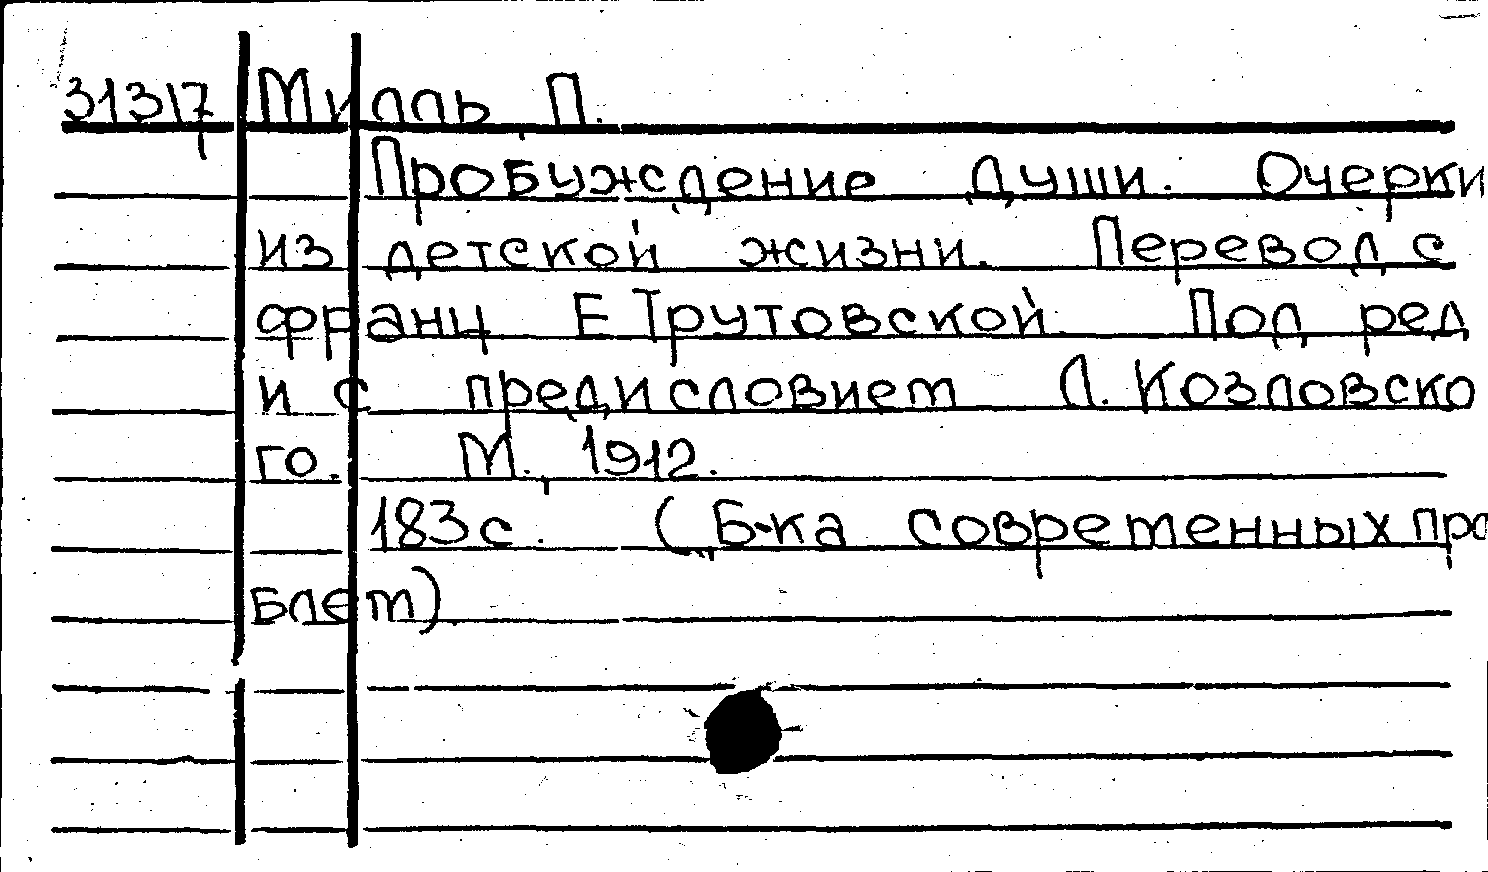 31317 Милль, П.
Пробуждение души. Очерки
из детской жизни. Перевод с
франц Е Трутовской. Под ред
и с предисловием Л. Козловско
го. М., 1912.
183 с. („Б-ка современных про
блем).